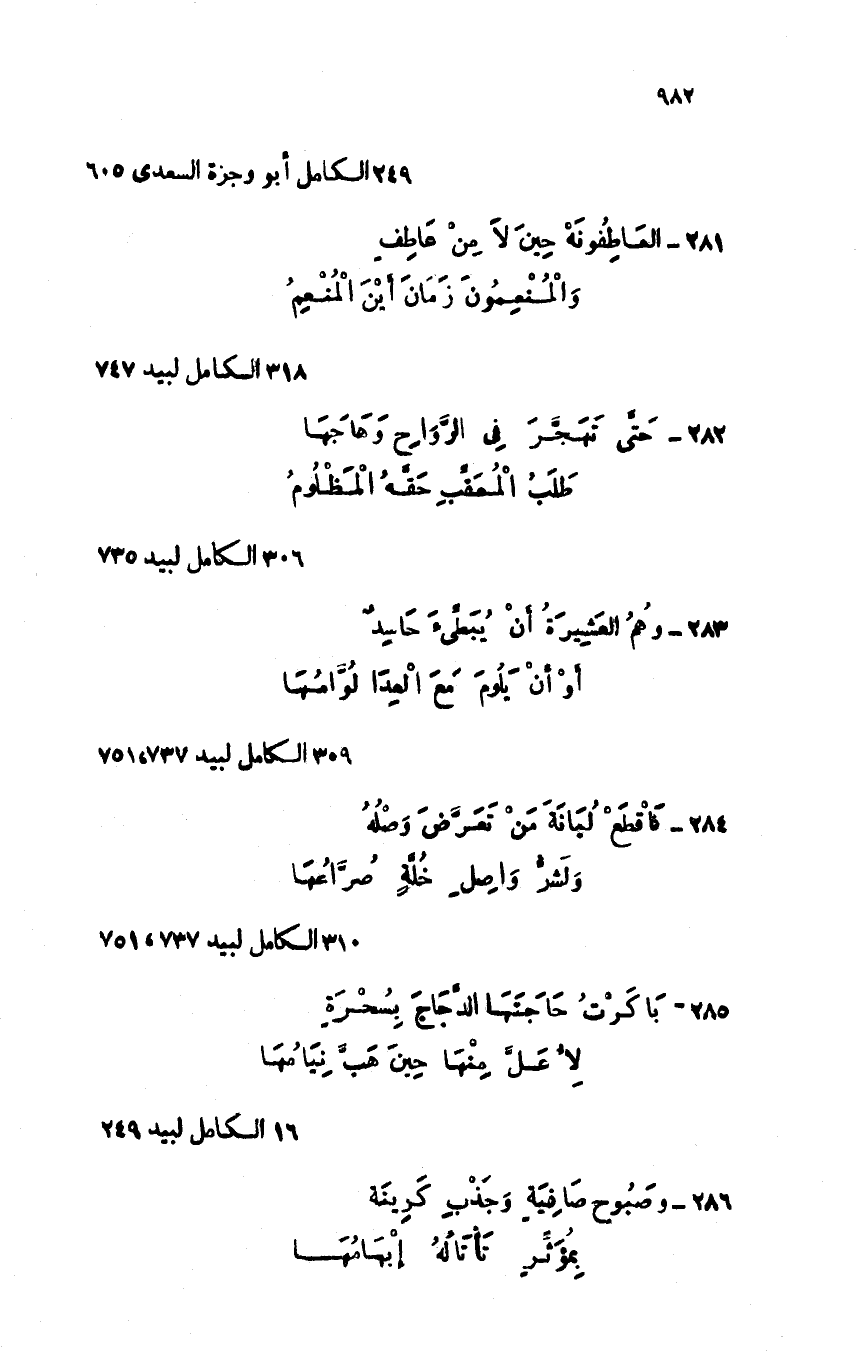 ٩٨٢
٢٤٩ الكامل أبو وجزة السعدى ٦٠٥
٢٨١ – العَاطِفُونَهْ حِينَ لاَ مِنْ عَاطِفٍ
وَالْمُنْعِمُونَ زَمَانَ أَيْنَ الْمُنْعِمُ
٣١٨ الكامل لبيد ٧٤٧
٢٨٢ – حَتَّى تَهَجَّرَ فِى الرَّوَاحِ وَهَاجَهَا
طَلَبُ الْمُعَقِّبِ حَقَّهُ الْمَظْلُومُ
٣٠٦ الكامل لبيد ٧٣٥
٢٨٣ – وهُمُ العَشِيرَةُ أَنْ يُبَطِّىءَ حَاسِدٌ
أَوْ أَنْ يَلُومَ مَعَ الْعِدَا لُوَّامُهَا
٣٠٩ الكامل لبيد ٧٣٧، ٧٥١
٢٨٤ – فَاقْطَعْ لُبَانَةَ مَنْ تَعَرَّضَ وَصْلُهُ
وَلَشَرُّ وَاصِلِ خُلَّةٍ صُرَّامُهَا
٣١٠ الكامل لبيد ٧٣٧، ٧٥١
٢٨٥ – بَاكَرْتُ حَاجَتَهَا الدَّجَاجَ بِسُحْرَةٍ
لِأُعَلَّ مِنْهَا حِينَ هَبَّ نِيَامُهَا
١٦ الكامل لبيد ٢٤٩
٢٨٦ – وصَبُوحِ صَافِيَةٍ وَجَذْبِ كَرِينَة
بِمُؤَثَّرٍ تَأْتَالُهُ إِبْهَامُهَا